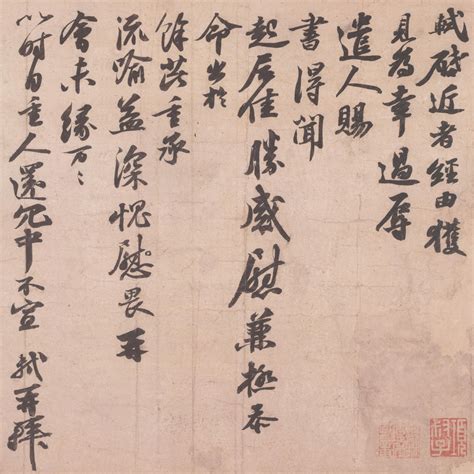 軾啟近者經由獲
見為幸過辱
遣人賜
書得聞
起居佳勝感慰兼極忝
命出於
餘芘重承
流喻益深愧慰畏再
會未緣万〻
以時自重人還冗中不宣 軾再拜